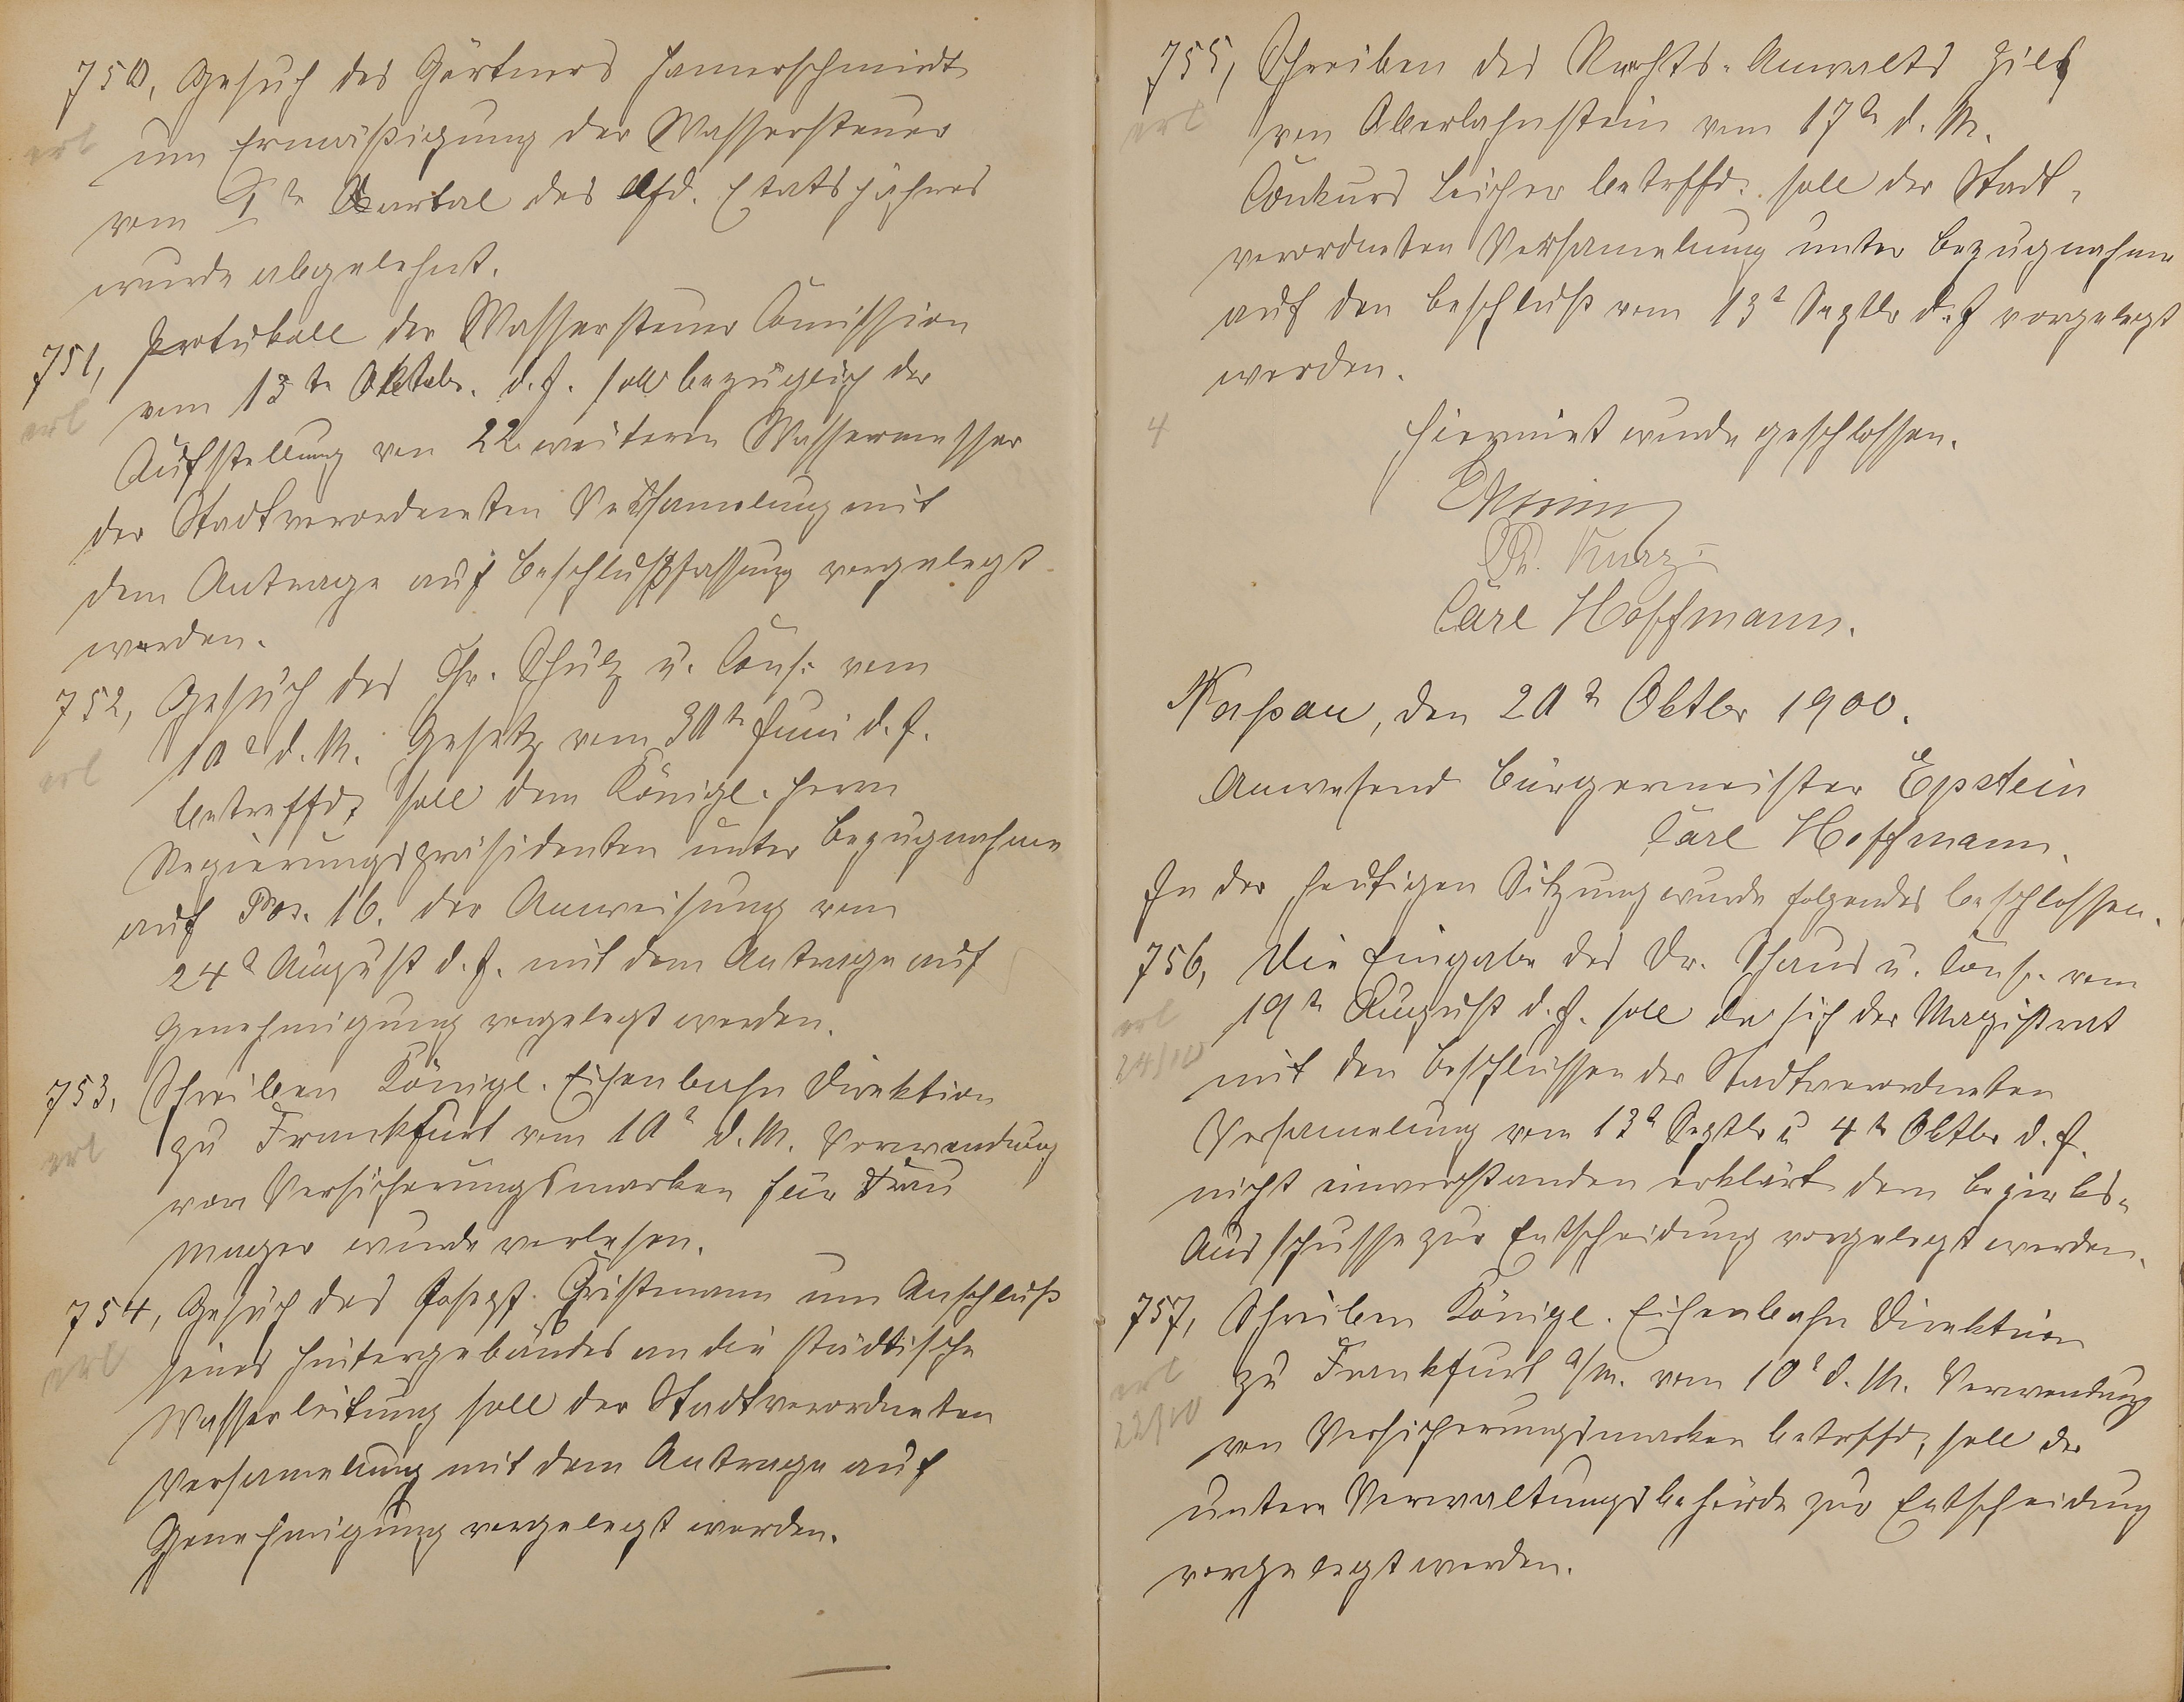 750, Gesuch des Gärtners Hamerschmidt
erl
um Ermäßigung der Wassersteuer
vom I te Quartal des lfd. Etatsjahres
wurde abgelehnt.
751, Protokoll der Wassersteuer Comission
vom 13te Oktobr. d. J. soll bezüglich der
erl
Aufstellung von 22 weitern Wassermesser
der Stadtverordneten Versamelung mit
dem Antrage auf Beschlußfassung vorgelegt
werden.
752, Gesuch des Chr. Schulz u. Cons. vom
10t d. M. Gesetz vom 30te Juni d. J.
erl
betreffd, soll dem Königl. Herrn
Regierungspräsidenten unter Bezugnahme
auf Pos. 16. der Anweisung vom
24t August d. J. mit dem Antrage auf
Genehmigung vorgelegt werden.
753, Schreiben Königl. Eisenbahn Direktion
zu Frankfurt vom 10t d. M. Verwendung
erl
von Versicherungsmarken für Frau
Mager wurde verlesen.
754, Gesuch des Joseph Christmann um Anschluß
erl
seines Hintergebäudes an die städtische
Wasserleitung soll der Stadtverordneten
Versamelung mit dem Antrage auf
Genehmigung vorgelegt werden.
755, Schreiben des Rechts-Anwalts Hilf
erl
von Oberlahnstein vom 17t d. M.
Conkurs Leicher betrffd. soll der Stadt-
verordneten Versamelung unter Bezugnahme
auf den Beschluß vom 13t Septbr d. J vorgelegt
werden.
4
Hiermit wurde geschlossen.
Kurz
Carl Hoffmann.
Naßau, den 20t Oktbr 1900.
Anwesend Bürgermeister Epstein
Carl Hoffmann.
In der heutigen Sitzung wurde folgendes beschlossen.
756, Die Eingabe des Dr. Schaus u. Cons. vom
19te August d. J. soll da sich der Magistrat
erl
24/10
mit den Beschlüssen der Stadtverordneten
Versamelung vom 13t Septbr u 4te Oktbr d. J.
nicht einverstanden erklärt dem Bezirks-
Ausschusse zur Entscheidung vorgelegt werden.
757, Schreiben Königl. Eisenbahn Direktion
zu Frankfurt a/m. vom 10t d. M. Verwendung
erl
22/10
von Versicherungsmarken betrffd, soll der
untern Verwaltungsbehörde zur Entscheidung
vorgelegt werden.